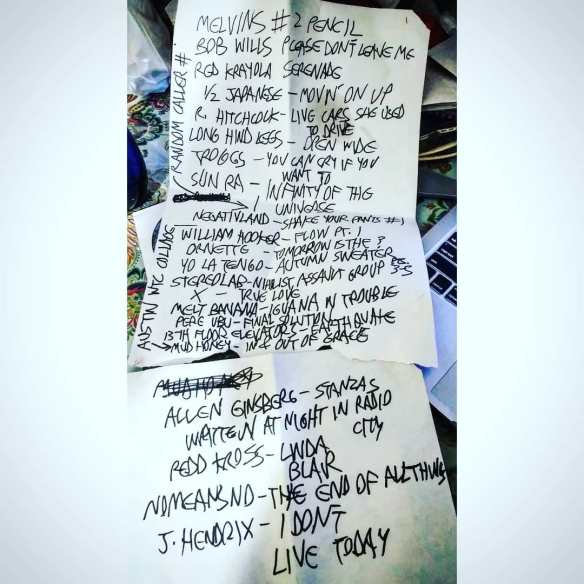 MELVINS #2 PENCIL
BOB WILLS PLEASE DON'T LEAVE ME
RED KRAYOLA SERENADE
1/2 JAPANESE - MOVIN' ON UP
R. HITCHCOCK - LIVE CARS SHE USED
TO DRIVE
LONG HIND LEGS - OPEN WIDE
TROGGS - YOU CAN CRY IF YOU
WANT TO
SUN RA - INFINITY OF THE
UNIVERSE
NEGATIVLAND - SHAKE YOUR PANTS #1
WILLIAM HOOKER - FLOW PT. 1
ORNETTE - TOMORROW IS THE ?
YO LA TENGO - AUTUMN SWEATER
STEREOLAB - NIHILIST ASSAULT GROUP PTS 3-5
X - TRUE LOVE
MELT BANANA - IGUANA IN TROUBLE
PERE UBU - FINAL SOLUTION
13TH FLOOR ELEVATORS - EARTHQUAKE
MUDHONEY - IN & OUT OF GRACE
RANDOM CALLER #1
AUSTIN MC
ALLEN GINSBERG - STANZAS
WRITTEN AT NIGHT IN RADIO
CITY
REDD KROSS - LINDA
BLAIR
NOMEANSNO - THE END OF ALL THINGS
J. HENDRIX - I DON'T
LIVE TODAY